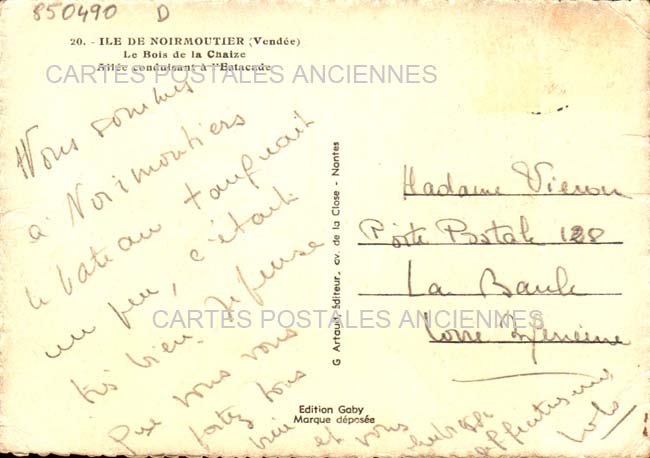 850490 D
20. - ILE DE NOIRMOUTIER (Vendée)
Le Bois de la Chaize
Allée conduisant à l'Estacade
CARTES POSTALES ANCIENNES
Nous sommes
à Noirmoutiers
le bateau tanguait
un peu, c'était
très bien. Je pense
que vous vous
portez tous
bien et vous embrasse
affectueusement
Lolo
G Artaud Éditeur, av. de la Close - Nantes
Madame Vieron
Poste Postale 128
La Baule
Loire Inférieure
CARTES POSTALES ANCIENNES
Edition Gaby
Marque déposée